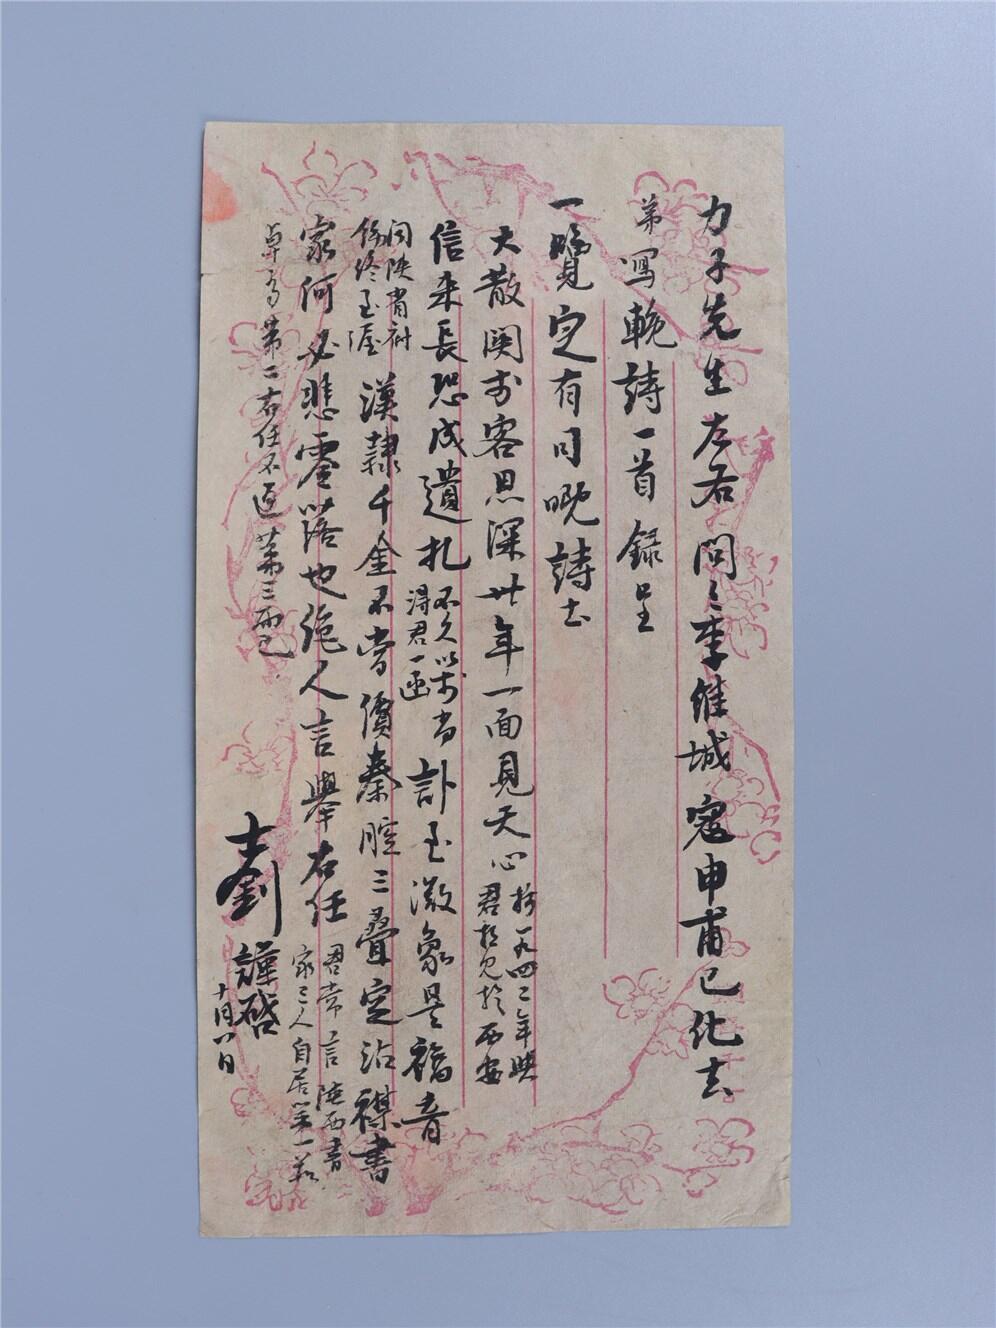 力子先生左右問之李維城寇申甫已化去
弟寫輓詩一首錄呈
一覽定有同嘅詩云
大散関前客思深廿年一面見天心
於一九四二年與
君相見於西安
信来長恐成遺札
不久以前尚
得君一函
訃至澂象是福音
問陝省府
係終玉渥
漢隸千金不當價秦腔三疊定沾襟書
家何必悲零落也絶人言舉右任
君常言陝西書
家三人自居第一若
卓亭第二右任不過第三而已
士劉謹啓
十月八日